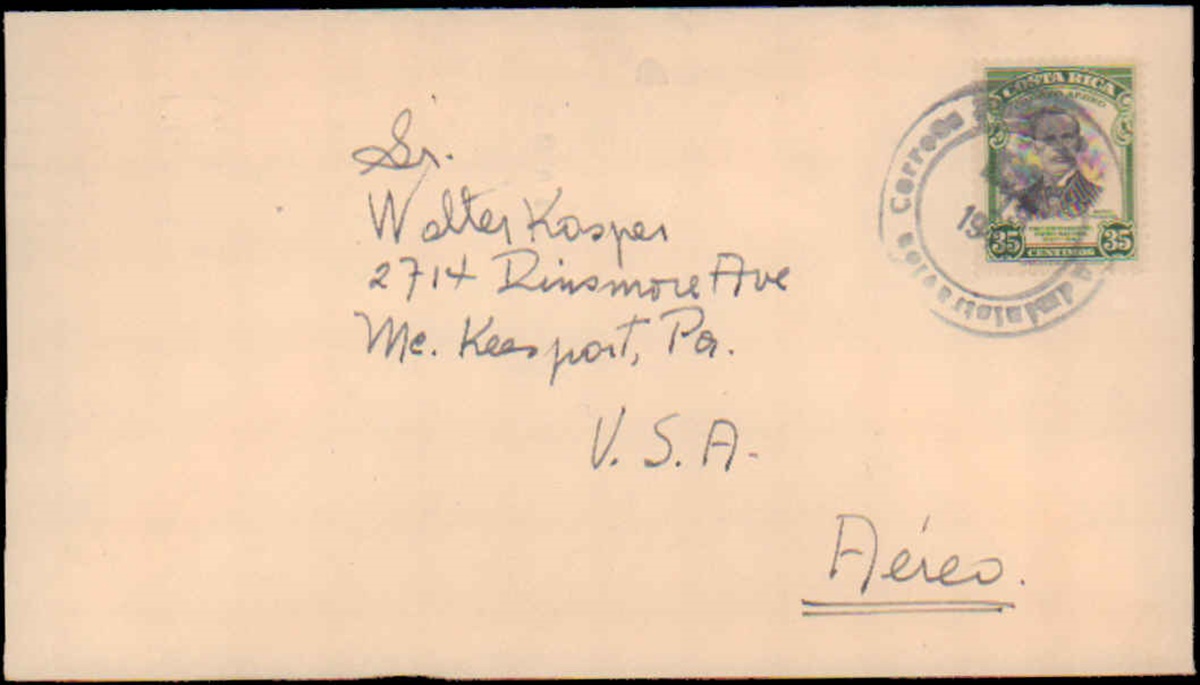 Sr.
Walter Kasper
2714 Dinsmore Ave
Mc. Keesport, Pa.
U.S.A.
Aéreo.
COSTA RICA
CORREO AEREO
35 CENTIMOS 35
Correos
19
Administracion